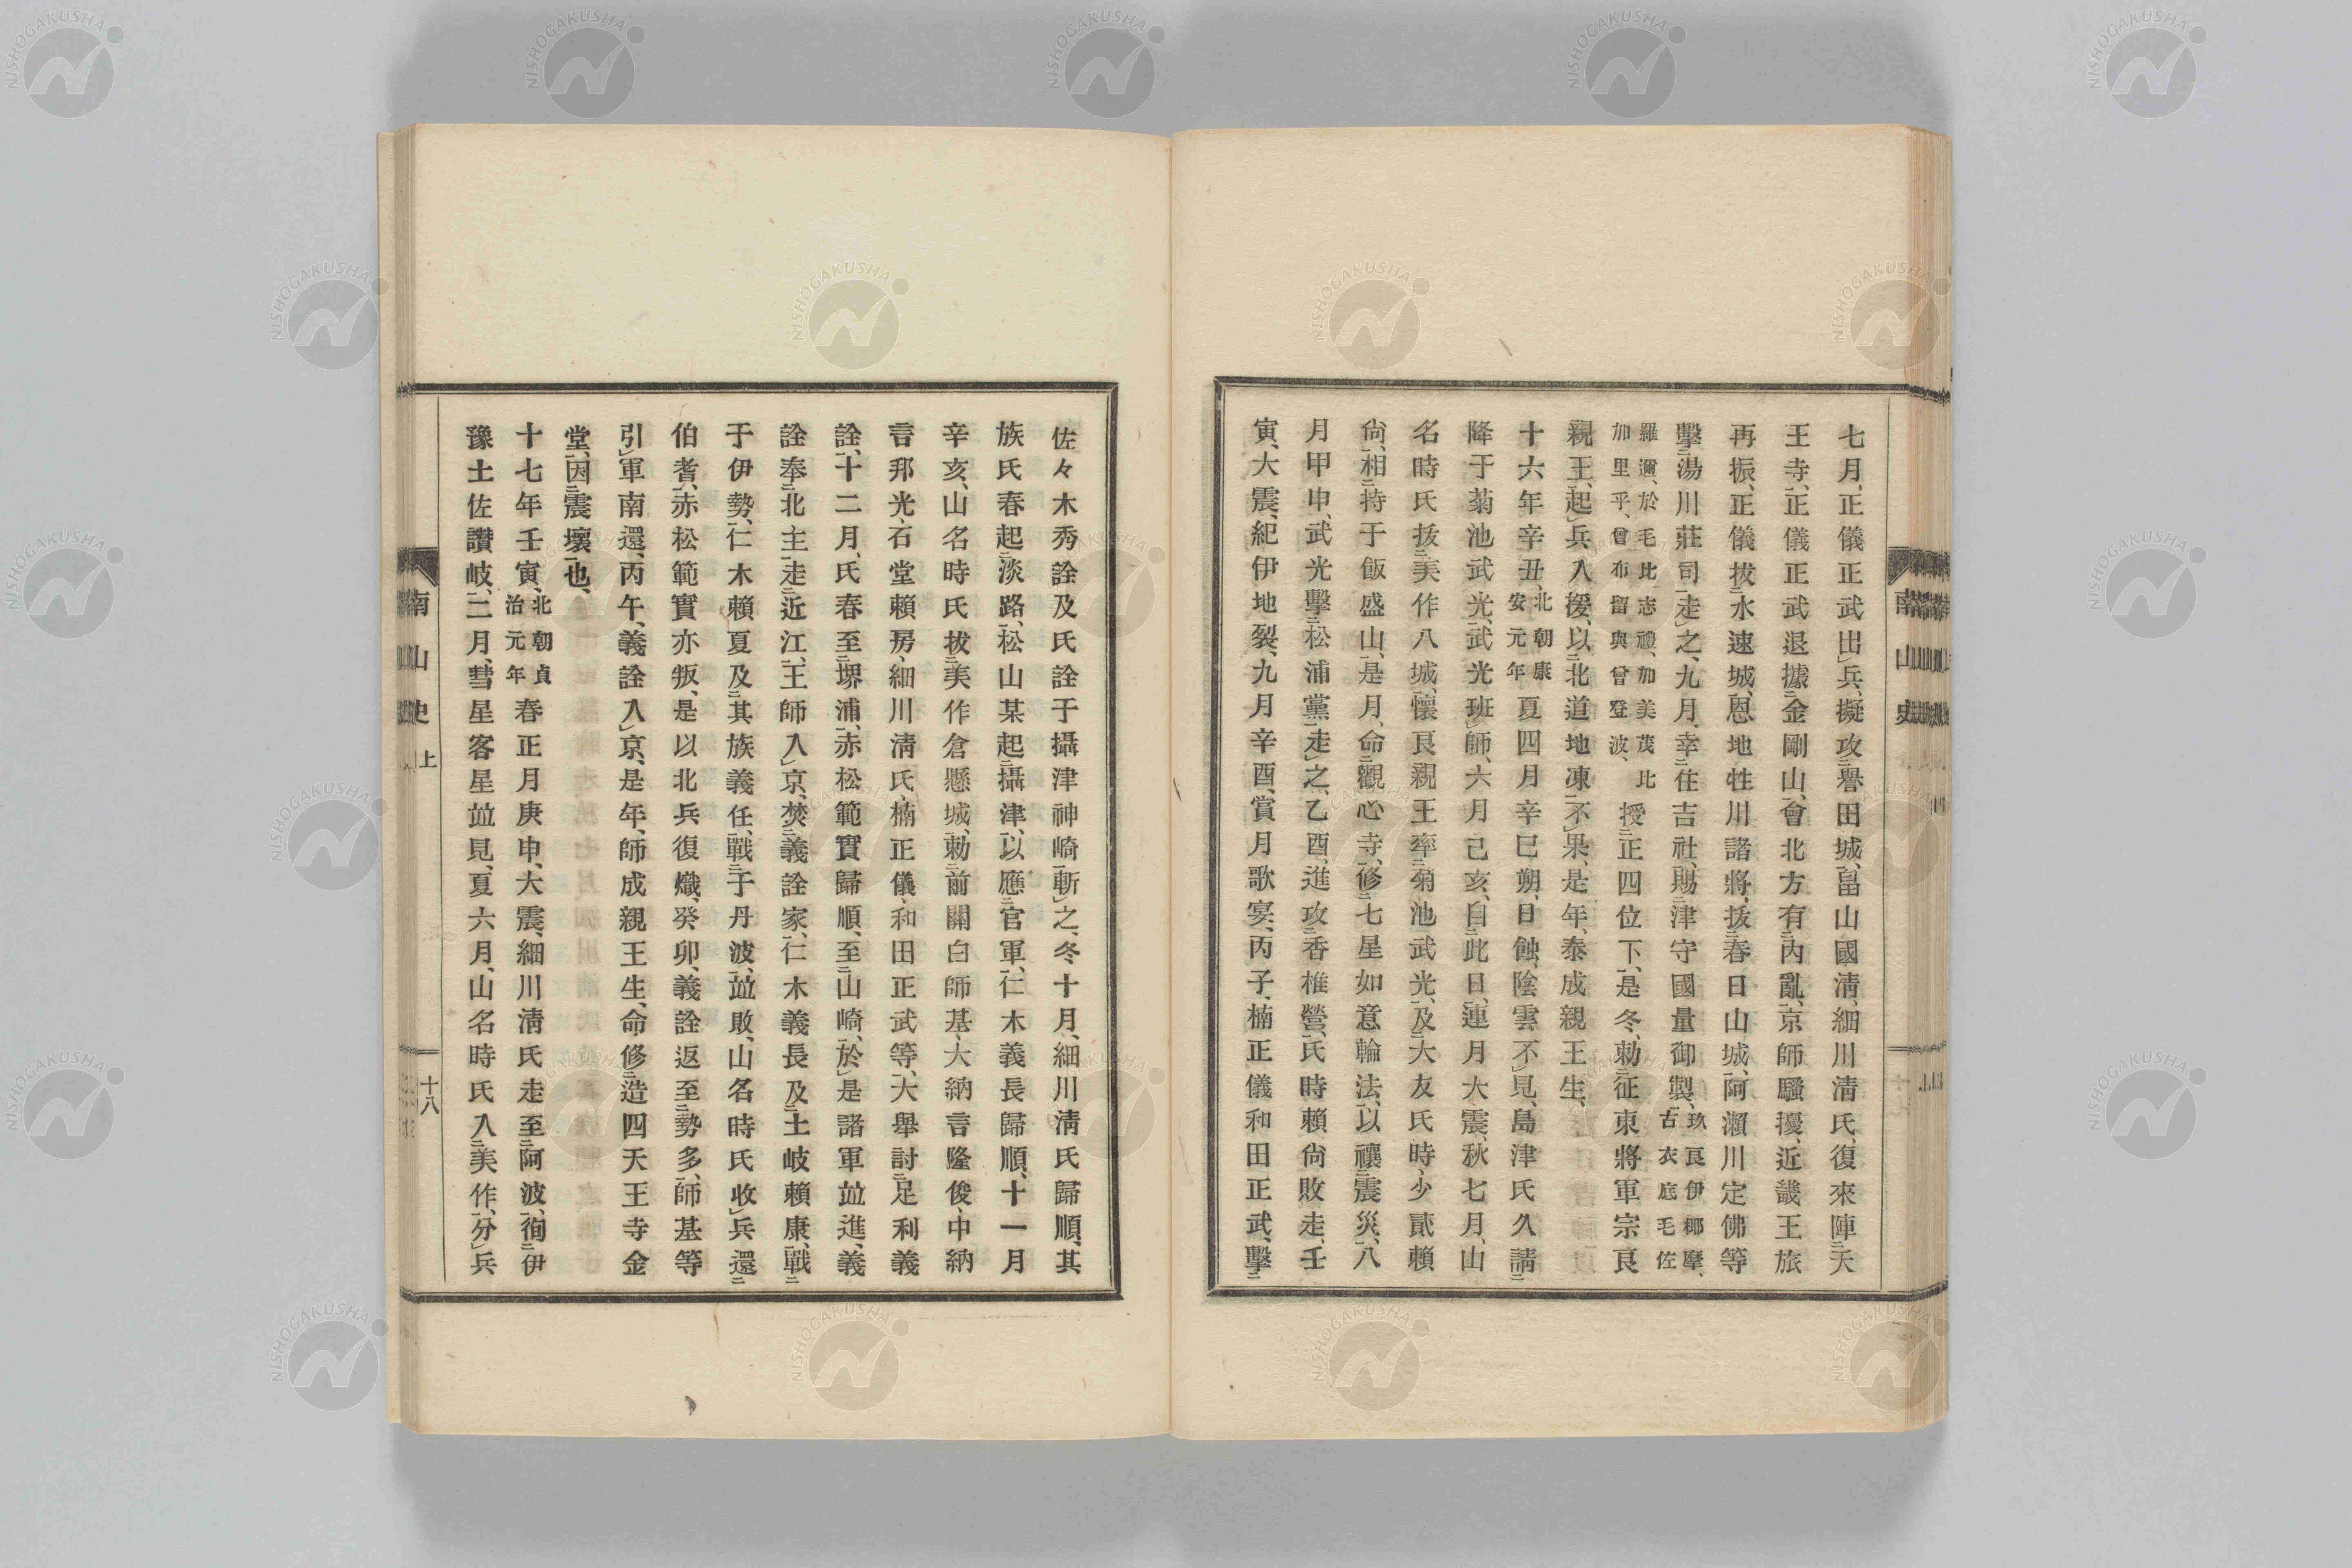 七月、正儀正武出兵、擬攻譽田城、畠山國淸、細川淸氏、復來陣天
王寺、正儀正武退據金剛山、會北方有內亂、京師騷擾、近畿王旅
再振、正儀拔水速城、恩地牲川諸將、拔春日山城、阿瀨川定佛等
擊湯川莊司走之、九月、幸住吉社、賜津守國量御製、玖良伊椰摩、古衣底毛佐
羅邇、於毛比志禮、加美茂比加里乎、曾布留與曾登波、授正四位下、是冬、勅征東將軍宗良
親王、起兵入援、以北道地凍不果、是年、泰成親王生、
十六年辛丑、北朝康安元年夏四月辛巳朔、日蝕、陰雲不見、島津氏久請
降于菊池武光、武光班師、六月己亥、自此日、連月大震、秋七月、山
名時氏拔美作八城、懷良親王率菊池武光、及大友氏時、少貳賴
尙、相持于飯盛山、是月、命觀心寺、修七星如意輪法、以禳震災、八
月甲申、武光擊松浦黨走之、乙酉、進攻香椎營、氏時賴尙敗走、壬
寅、大震、紀伊地裂、九月辛酉、賞月歌宴、丙子、楠正儀和田正武、擊
佐々木秀詮及氏詮于攝津神崎斬之、冬十月、細川淸氏歸順、其
族氏春起淡路、松山某起攝津、以應官軍、仁木義長歸順、十一月
辛亥、山名時氏拔美作倉懸城、勅前關白師基、大納言隆俊、中納
言邦光、石堂賴房、細川淸氏、楠正儀、和田正武等、大舉討足利義
詮、十二月、氏春至堺浦、赤松範實歸順、至山崎、於是諸軍竝進、義
詮奉北主走近江、王師入京、焚義詮家、仁木義長及土岐賴康、戰
于伊勢、仁木賴夏及其族義任、戰于丹波、竝敗、山名時氏收兵還
伯耆、赤松範實亦叛、是以北兵復熾、癸卯、義詮返至勢多、師基等
引軍南還、丙午、義詮入京、是年、師成親王生、命修造四天王寺金
堂、因震壞也、
十七年壬寅、北朝貞治元年春正月庚申、大震、細川淸氏走至阿波、徇伊
豫土佐讚岐、二月、彗星客星竝見、夏六月、山名時氏入美作、分兵
南山史 上 十八